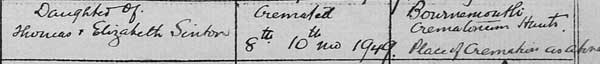 Daughter of
Thomas & Elizabeth Sinton
Cremated
8th 10th mo 1949.
Bournemouth
Crematorium Hants.
Place of Cremation as above